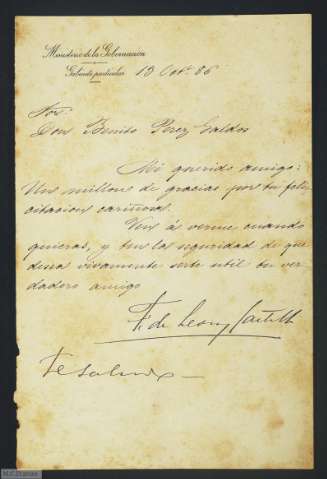 Ministerio de la Gobernación
Gabinete particular
13 Oct. 86
Sor
Don Benito Perez Galdos
Mi querido amigo:
Un millon de gracias por tu feli
citacion cariñosa.
Ven á verme cuando
quieras, y ten la seguridad de que
desea vivamente serte util tu ver
dadero amigo
F. de Leon y Castillo